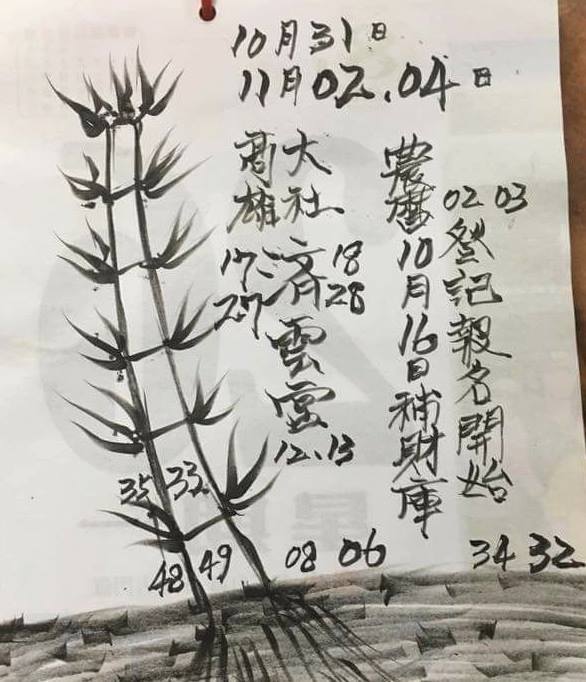 10月31日
11月02.04日
農曆10月16日補財庫
02 03
登記報名開始
大社
高雄
17 济 18
27 28
雲宮
12.13
35 33
48 49
08 06
34 32